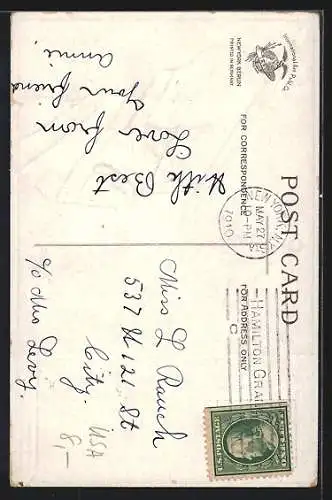 POST CARD
FOR CORRESPONDENCE
FOR ADDRESS ONLY
NEW YORK, N.Y.
MAY 27
PM
1910
HAMILTON GRA
With Best
Love from
Your friend
Annie.
Miss L Rauch
537 W 121 St
City.
USA
8,-
c/o Mrs Levy.
NEW YORK BERLIN
PRINTED IN GERMANY